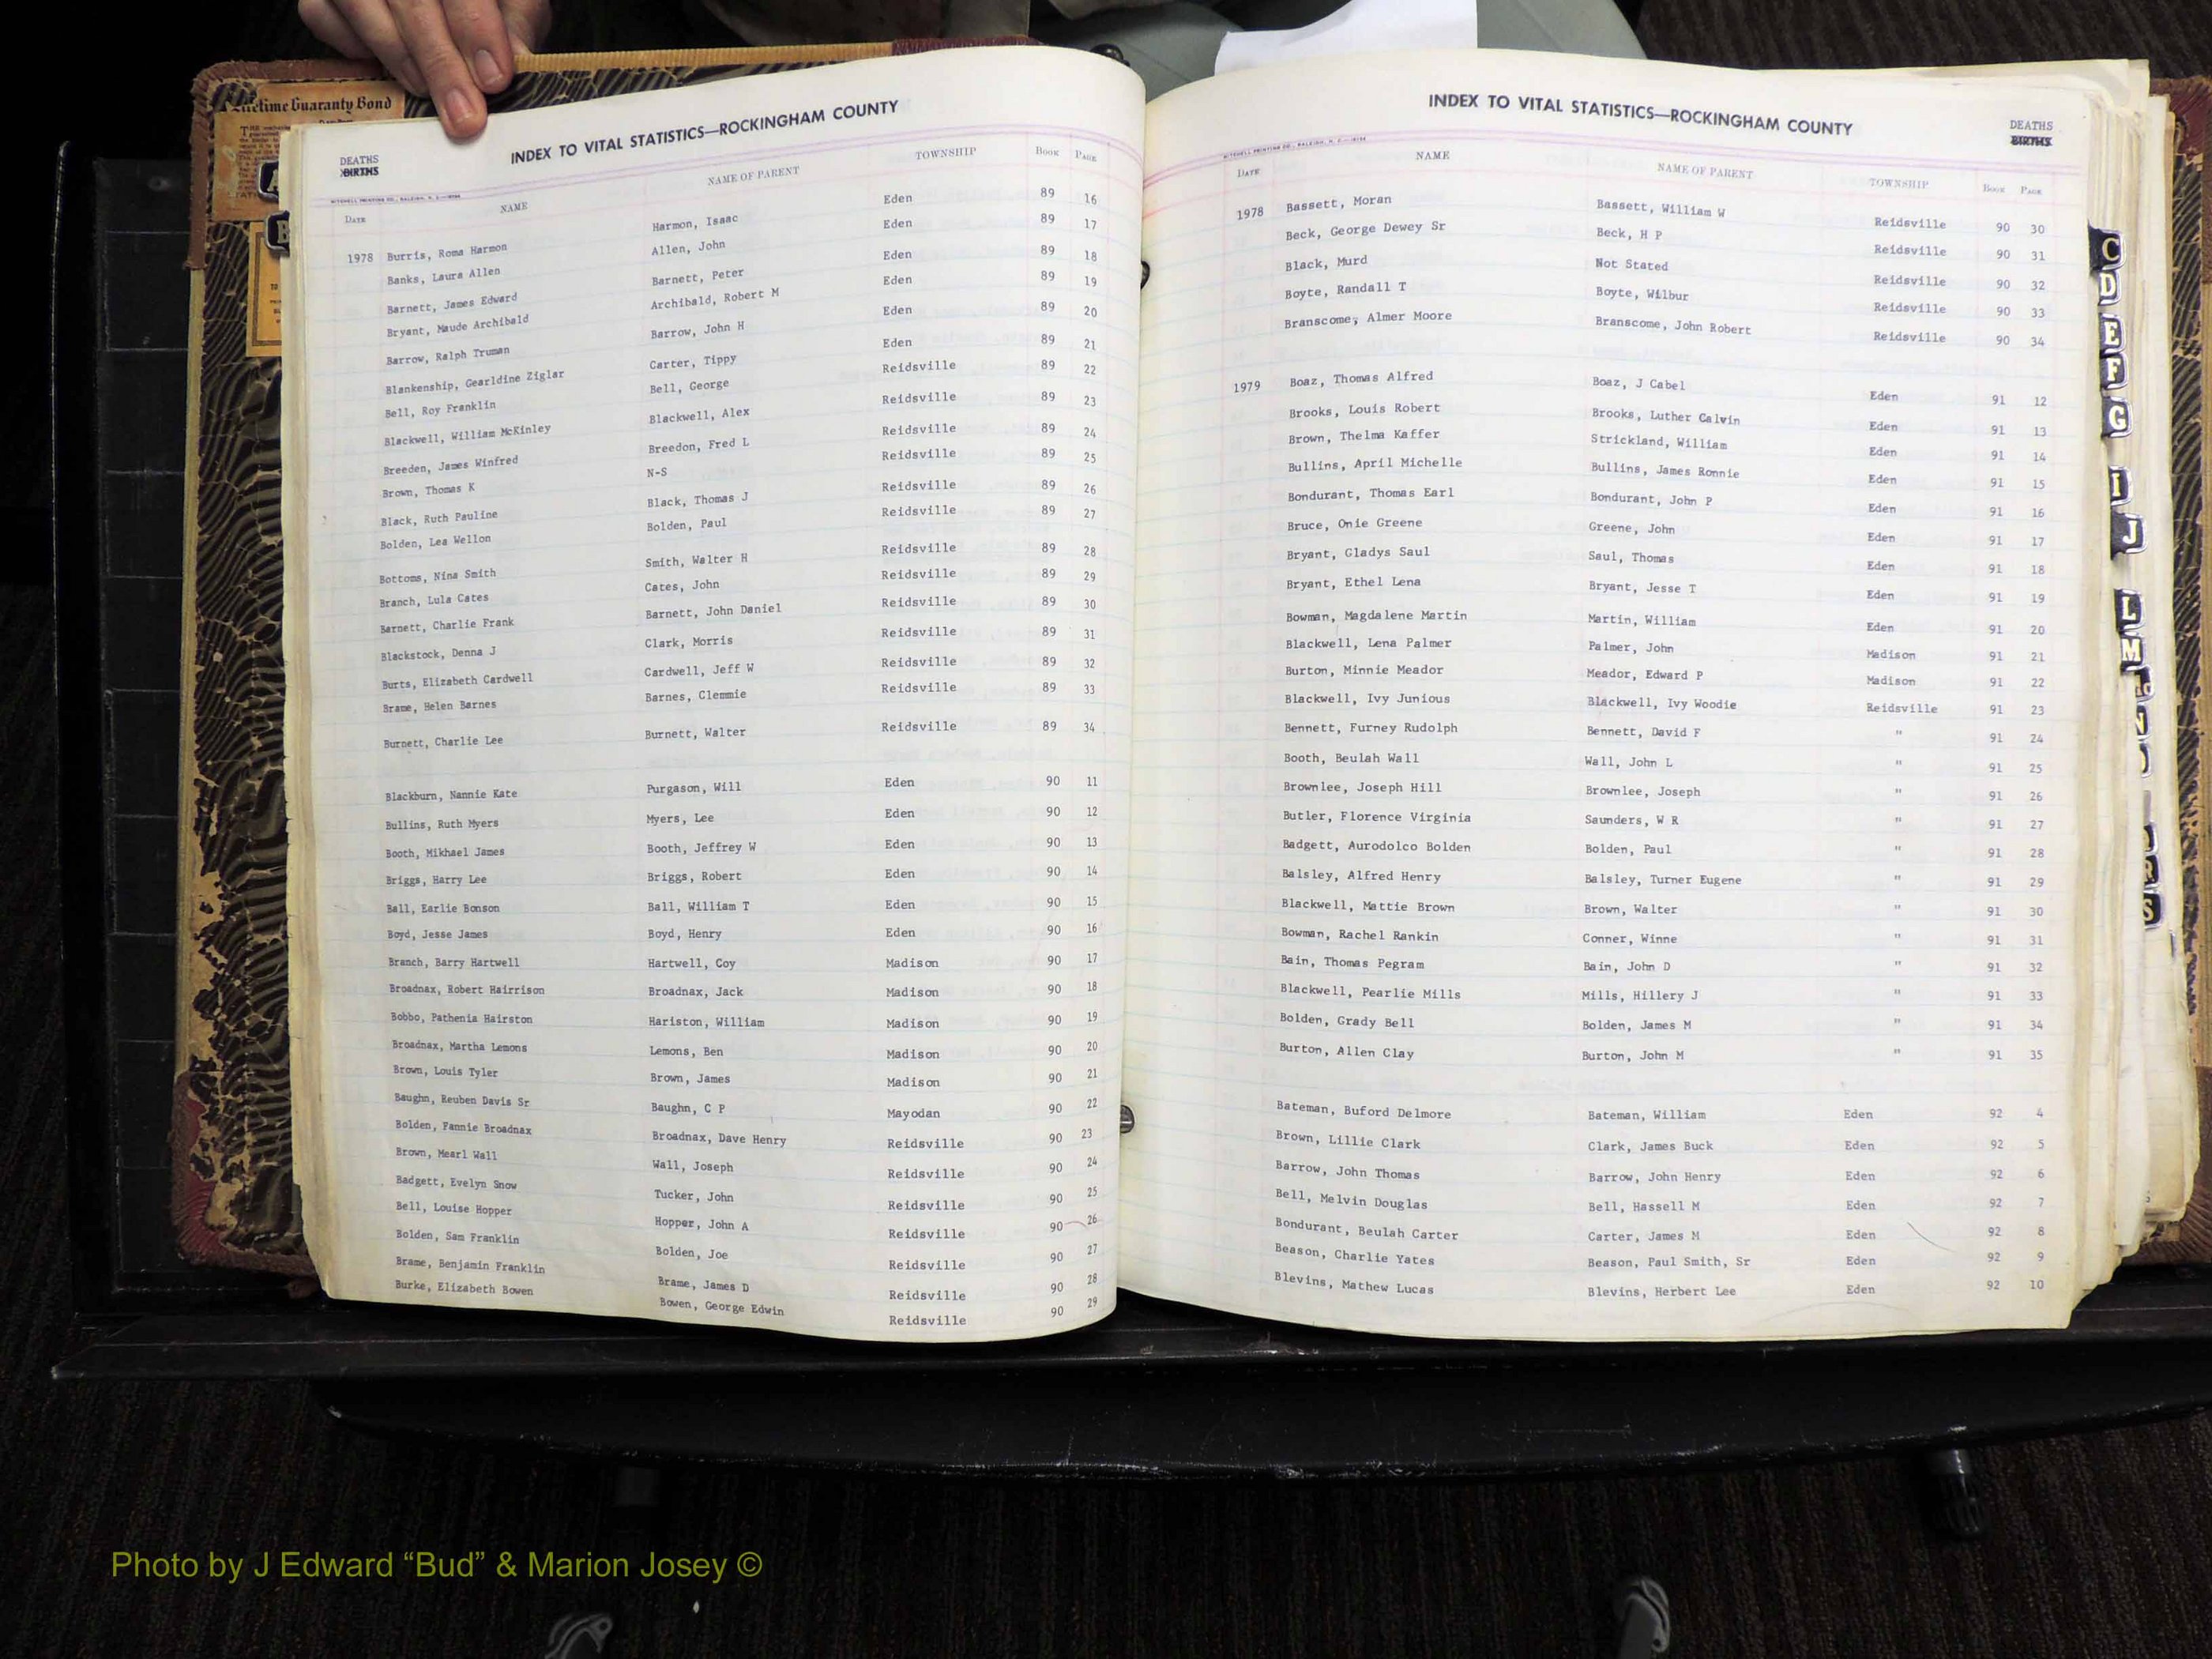 Lifetime Guaranty Bond
DEATHS
BIRTHS
INDEX TO VITAL STATISTICS—ROCKINGHAM COUNTY
MITCHELL PRINTING CO., RALEIGH, N. C.
DATE NAME NAME OF PARENT TOWNSHIP BOOK PAGE
1978 Burris, Roma Harmon Harmon, Isaac Eden 89 16
Banks, Laura Allen Allen, John Eden 89 17
Barnett, James Edward Barnett, Peter Eden 89 18
Bryant, Maude Archibald Archibald, Robert M Eden 89 19
Barrow, Ralph Truman Barrow, John H Eden 89 20
Blankenship, Gearldine Ziglar Carter, Tippy Eden 89 21
Bell, Roy Franklin Bell, George Reidsville 89 22
Blackwell, William McKinley Blackwell, Alex Reidsville 89 23
Breeden, James Winfred Breedon, Fred L Reidsville 89 24
Brown, Thomas K N-S Reidsville 89 25
Black, Ruth Pauline Black, Thomas J Reidsville 89 26
Bolden, Lea Wellon Bolden, Paul Reidsville 89 27
Bottoms, Nina Smith Smith, Walter H Reidsville 89 28
Branch, Lula Cates Cates, John Reidsville 89 29
Barnett, Charlie Frank Barnett, John Daniel Reidsville 89 30
Blackstock, Denna J Clark, Morris Reidsville 89 31
Burts, Elizabeth Cardwell Cardwell, Jeff W Reidsville 89 32
Brame, Helen Barnes Barnes, Clemmie Reidsville 89 33
Burnett, Charlie Lee Burnett, Walter Reidsville 89 34
Blackburn, Nannie Kate Purgason, Will Eden 90 11
Bullins, Ruth Myers Myers, Lee Eden 90 12
Booth, Mikhael James Booth, Jeffrey W Eden 90 13
Briggs, Harry Lee Briggs, Robert Eden 90 14
Ball, Earlie Bonson Ball, William T Eden 90 15
Boyd, Jesse James Boyd, Henry Eden 90 16
Branch, Barry Hartwell Hartwell, Coy Madison 90 17
Broadnax, Robert Hairrison Broadnax, Jack Madison 90 18
Bobbo, Pathenia Hairston Hariston, William Madison 90 19
Broadnax, Martha Lemons Lemons, Ben Madison 90 20
Brown, Louis Tyler Brown, James Madison 90 21
Baughn, Reuben Davis Sr Baughn, C P Mayodan 90 22
Bolden, Fannie Broadnax Broadnax, Dave Henry Reidsville 90 23
Brown, Mearl Wall Wall, Joseph Reidsville 90 24
Badgett, Evelyn Snow Tucker, John Reidsville 90 25
Bell, Louise Hopper Hopper, John A Reidsville 90 26
Bolden, Sam Franklin Bolden, Joe Reidsville 90 27
Brame, Benjamin Franklin Brame, James D Reidsville 90 28
Burke, Elizabeth Bowen Bowen, George Edwin Reidsville 90 29
INDEX TO VITAL STATISTICS—ROCKINGHAM COUNTY
DEATHS
BIRTHS
MITCHELL PRINTING CO., RALEIGH, N. C.
DATE NAME NAME OF PARENT TOWNSHIP BOOK PAGE
1978 Bassett, Moran Bassett, William W Reidsville 90 30
Beck, George Dewey Sr Beck, H P Reidsville 90 31
Black, Murd Not Stated Reidsville 90 32
Boyte, Randall T Boyte, Wilbur Reidsville 90 33
Branscome, Almer Moore Branscome, John Robert Reidsville 90 34
1979 Boaz, Thomas Alfred Boaz, J Cabel Eden 91 12
Brooks, Louis Robert Brooks, Luther Calvin Eden 91 13
Brown, Thelma Kaffer Strickland, William Eden 91 14
Bullins, April Michelle Bullins, James Ronnie Eden 91 15
Bondurant, Thomas Earl Bondurant, John P Eden 91 16
Bruce, Onie Greene Greene, John Eden 91 17
Bryant, Gladys Saul Saul, Thomas Eden 91 18
Bryant, Ethel Lena Bryant, Jesse T Eden 91 19
Bowman, Magdalene Martin Martin, William Eden 91 20
Blackwell, Lena Palmer Palmer, John Madison 91 21
Burton, Minnie Meador Meador, Edward P Madison 91 22
Blackwell, Ivy Junious Blackwell, Ivy Woodie Reidsville 91 23
Bennett, Furney Rudolph Bennett, David F " 91 24
Booth, Beulah Wall Wall, John L " 91 25
Brownlee, Joseph Hill Brownlee, Joseph " 91 26
Butler, Florence Virginia Saunders, W R " 91 27
Badgett, Aurodolco Bolden Bolden, Paul " 91 28
Balsley, Alfred Henry Balsley, Turner Eugene " 91 29
Blackwell, Mattie Brown Brown, Walter " 91 30
Bowman, Rachel Rankin Conner, Winne " 91 31
Bain, Thomas Pegram Bain, John D " 91 32
Blackwell, Pearlie Mills Mills, Hillery J " 91 33
Bolden, Grady Bell Bolden, James M " 91 34
Burton, Allen Clay Burton, John M " 91 35
Bateman, Buford Delmore Bateman, William Eden 92 4
Brown, Lillie Clark Clark, James Buck Eden 92 5
Barrow, John Thomas Barrow, John Henry Eden 92 6
Bell, Melvin Douglas Bell, Hassell M Eden 92 7
Bondurant, Beulah Carter Carter, James M Eden 92 8
Beason, Charlie Yates Beason, Paul Smith, Sr Eden 92 9
Blevins, Mathew Lucas Blevins, Herbert Lee Eden 92 10
C
D
E
F
G
I
J
L
M
N
R
S
Photo by J Edward “Bud” & Marion Josey ©